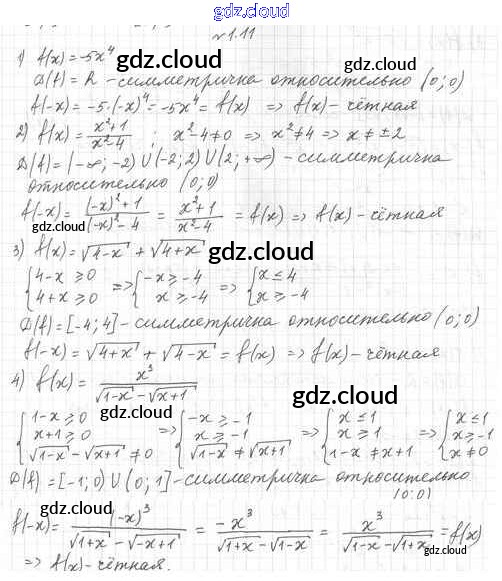 gdz.cloud
№1.11
1) f(x) = -5x⁴
gdz.cloud gdz.cloud
D(f) = R - симметрична относительно (0; 0)
f(-x) = -5·(-x)⁴ = -5x⁴ = f(x) => f(x) - чётная
2) f(x) = (x²+1)/(x²-4) ; x²-4≠0 => x²≠4 => x≠±2
gdz.cloud gdz.cloud
D(f) = (-∞; -2) ∪ (-2; 2) ∪ (2; +∞) - симметрична
относительно (0; 0)
f(-x) = ((-x)²+1)/((-x)²-4) = (x²+1)/(x²-4) = f(x) => f(x) - чётная
3) f(x) = √(4-x) + √(4+x)
gdz.cloud
{4-x ≥ 0 => {-x ≥ -4 => {x ≤ 4
4+x ≥ 0 x ≥ -4 x ≥ -4
gdz.cloud gdz.cloud
D(f) = [-4; 4] - симметрична относительно (0; 0)
f(-x) = √(4+x) + √(4-x) = f(x) => f(x) - чётная
4) f(x) = x³/(√(1-x) - √(x+1))
gdz.cloud gdz.cloud
{1-x ≥ 0 => {-x ≥ -1 => {x ≤ 1 => {x ≤ 1
x+1 ≥ 0 x ≥ -1 x ≥ 1 x ≥ -1
√(1-x) - √(x+1) ≠ 0 √(1-x) ≠ √(x+1) 1-x ≠ x+1 x ≠ 0
D(f) = [-1; 0) ∪ (0; 1] - симметрична относительно
(0; 0)
gdz.cloud gdz.cloud
f(-x) = (-x)³/(√(1+x) - √(-x+1)) = -x³/(√(1+x) - √(1-x)) = x³/(√(1-x) - √(1+x)) = f(x)
=> f(x) - чётная.
gdz.cloud gdz.cloud